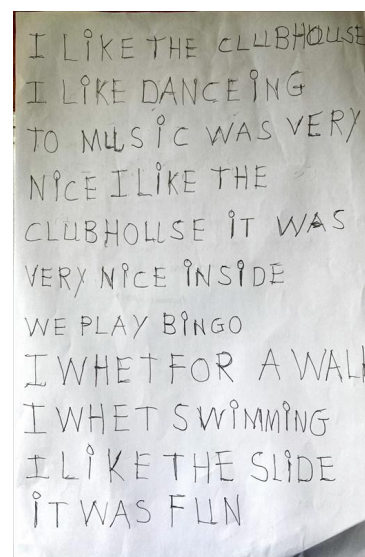 I LiKE THE CLUBHOUSE
I LiKE DANCEiNG
TO MUSiC WAS VERY
NiCE I LiKE THE
CLUBHOUSE iT WAS
VERY NiCE iNSiDE
WE PLAY BiNGO
I WHET FOR A WALK
I WHET SWiMMiNG
I LiKE THE SLiDE
iT WAS FUN